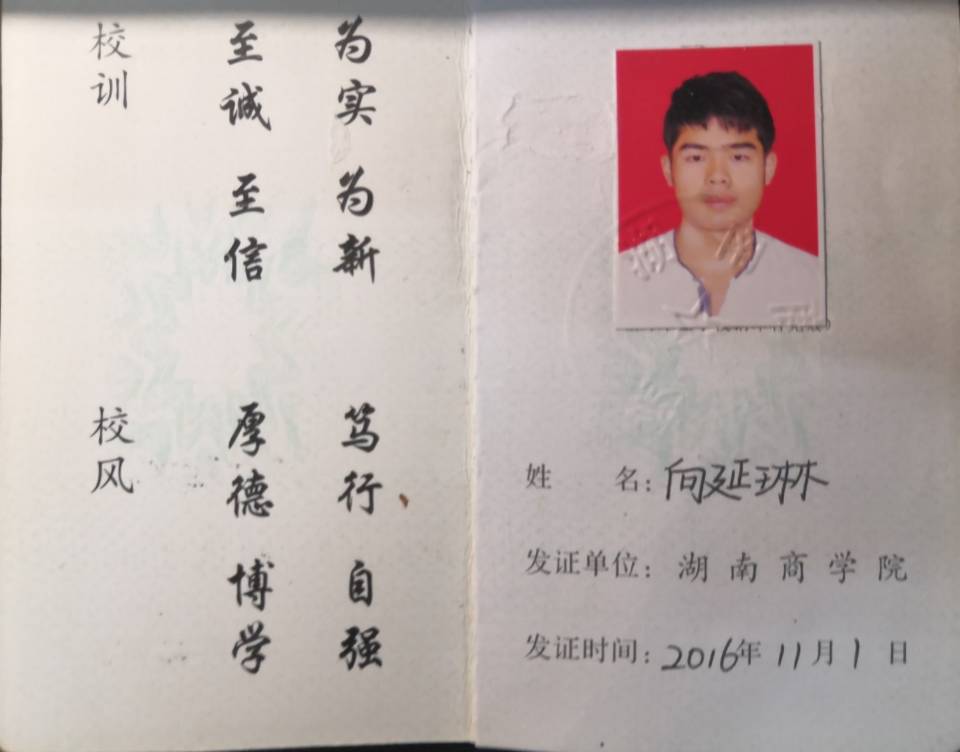 校训
至诚 至信
为实 为新
校风
厚德 博学
笃行 自强
姓 名：向延琳
发证单位：湖南商学院
发证时间：2016年11月1日